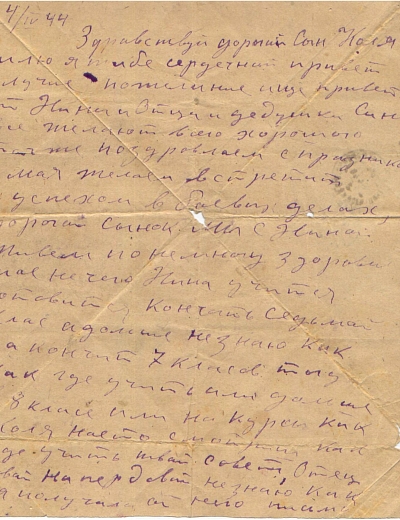 4/IV 44
Здравствуй дорогой сын Коля
шлю я тебе сердечний привет
пожелание ище привет
от Нины и Отца и дедушки
желают всего хорошого
также поздровляем с празнико
мая желаем встретит
успехом в боевых делах,
дорогой сынок мы с Нина.
Живем понемногу здорови
нечего Нина учится
готовится кончать седьмой
клас а дальше незнаю как
а кончит 7 класов то
как где учить или дальше
8 класе или на курси как
Коля на ето смотриш как
где учить твай совет, Отец
на передовой незнаю как
я получала от него писмо